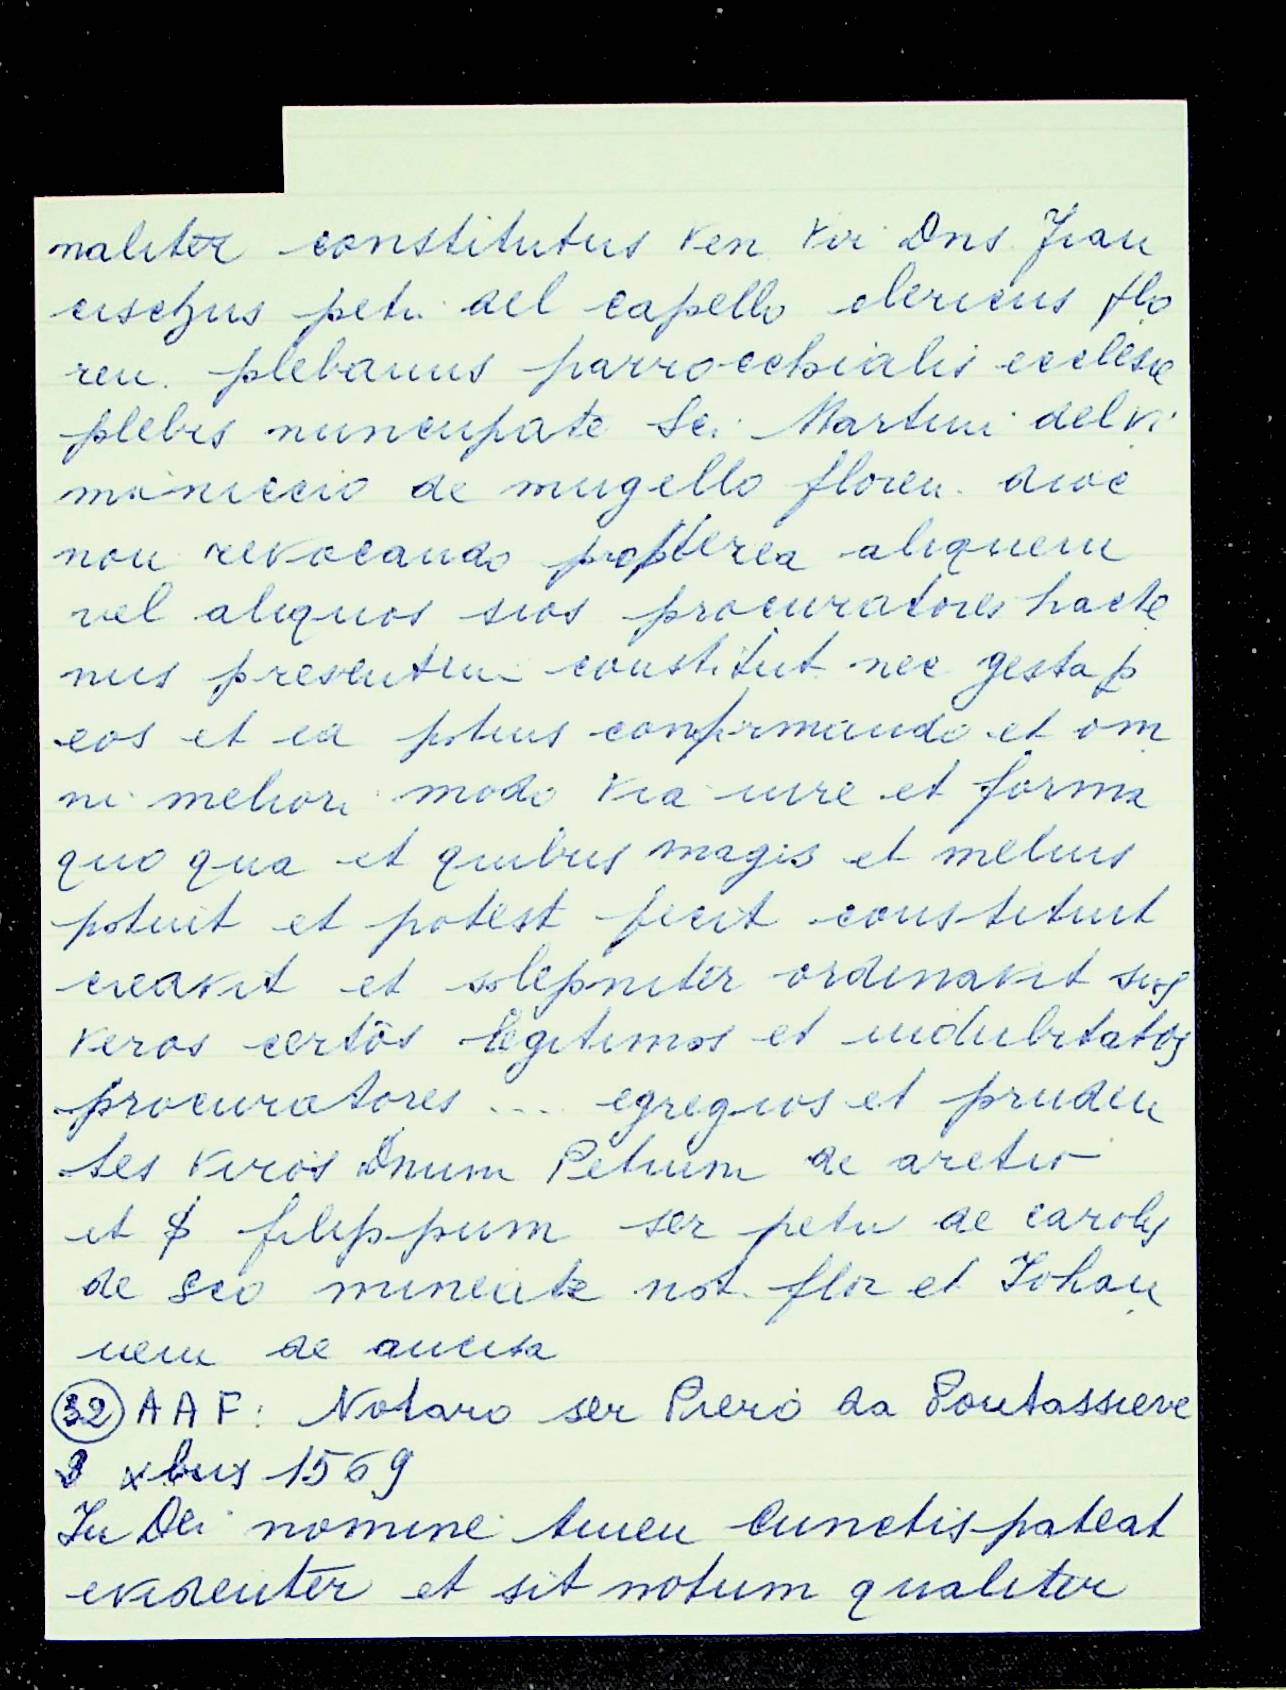 naliter constitutus ven vir Dns. Fran
cischus petri del capello clericus flo
ren. plebanus parrocchialis ecclesie
plebis nuncupate Sci. Martini del vi
minuccio de mugello floren. dioc
non revocando propterea aliquem
vel aliquos suos procuratores hacte
nus presentem constitut. nec gesta p
eos et ea potius confirmando et om
ni meliori modo via iure et forma
quo qua et quibus magis et melius
potuit et potest fecit constituit
creavit et solepniter ordinavit suos
veros certos legitimos et indubitatos
procuratores .... egregios et pruden
tes viros Dnum Petrum de aretio
et $ filippum ser petri de carolis
de Sco miniate not. flor et Johan
nem de ancisa
32 AAF: Notaro ser Piero da Pontassieve
8 xbus 1569
In Dei nomine amen Cunctis pateat
evidenter et sit notum qualiter